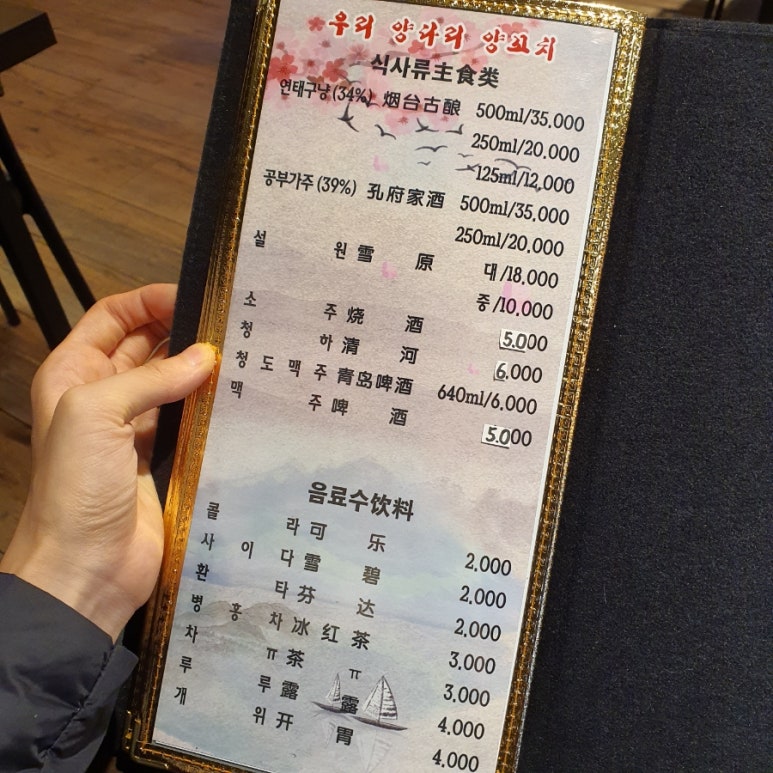 우리 양다리 양꼬치
식사류主食类
연태구냥 (34%) 烟台古酿 500ml/35,000
250ml/20,000
125ml/12,000
공부가주 (39%) 孔府家酒 500ml/35,000
250ml/20,000
설원 雪原 대/18,000
중/10,000
소주 烧酒 5,000
청하 清河 6,000
청도맥주 青岛啤酒 640ml/6,000
맥주 啤酒 5,000
음료수饮料
콜라 可乐 2,000
사이다 雪碧 2,000
환타 芬达 2,000
병홍차 冰红茶 3,000
차ㅠ 茶ㅠ 3,000
루루 露露 4,000
개위 开胃 4,000